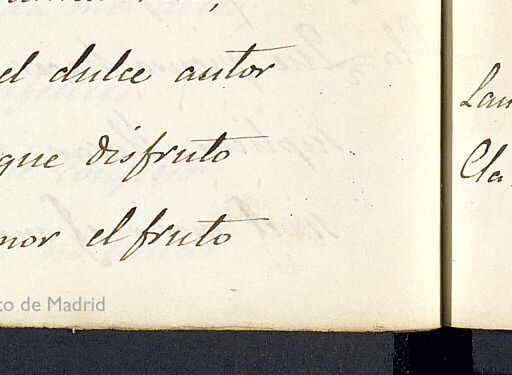 el dulce autor
que disfruto
mor el fruto
to de Madrid
Lau
Cla